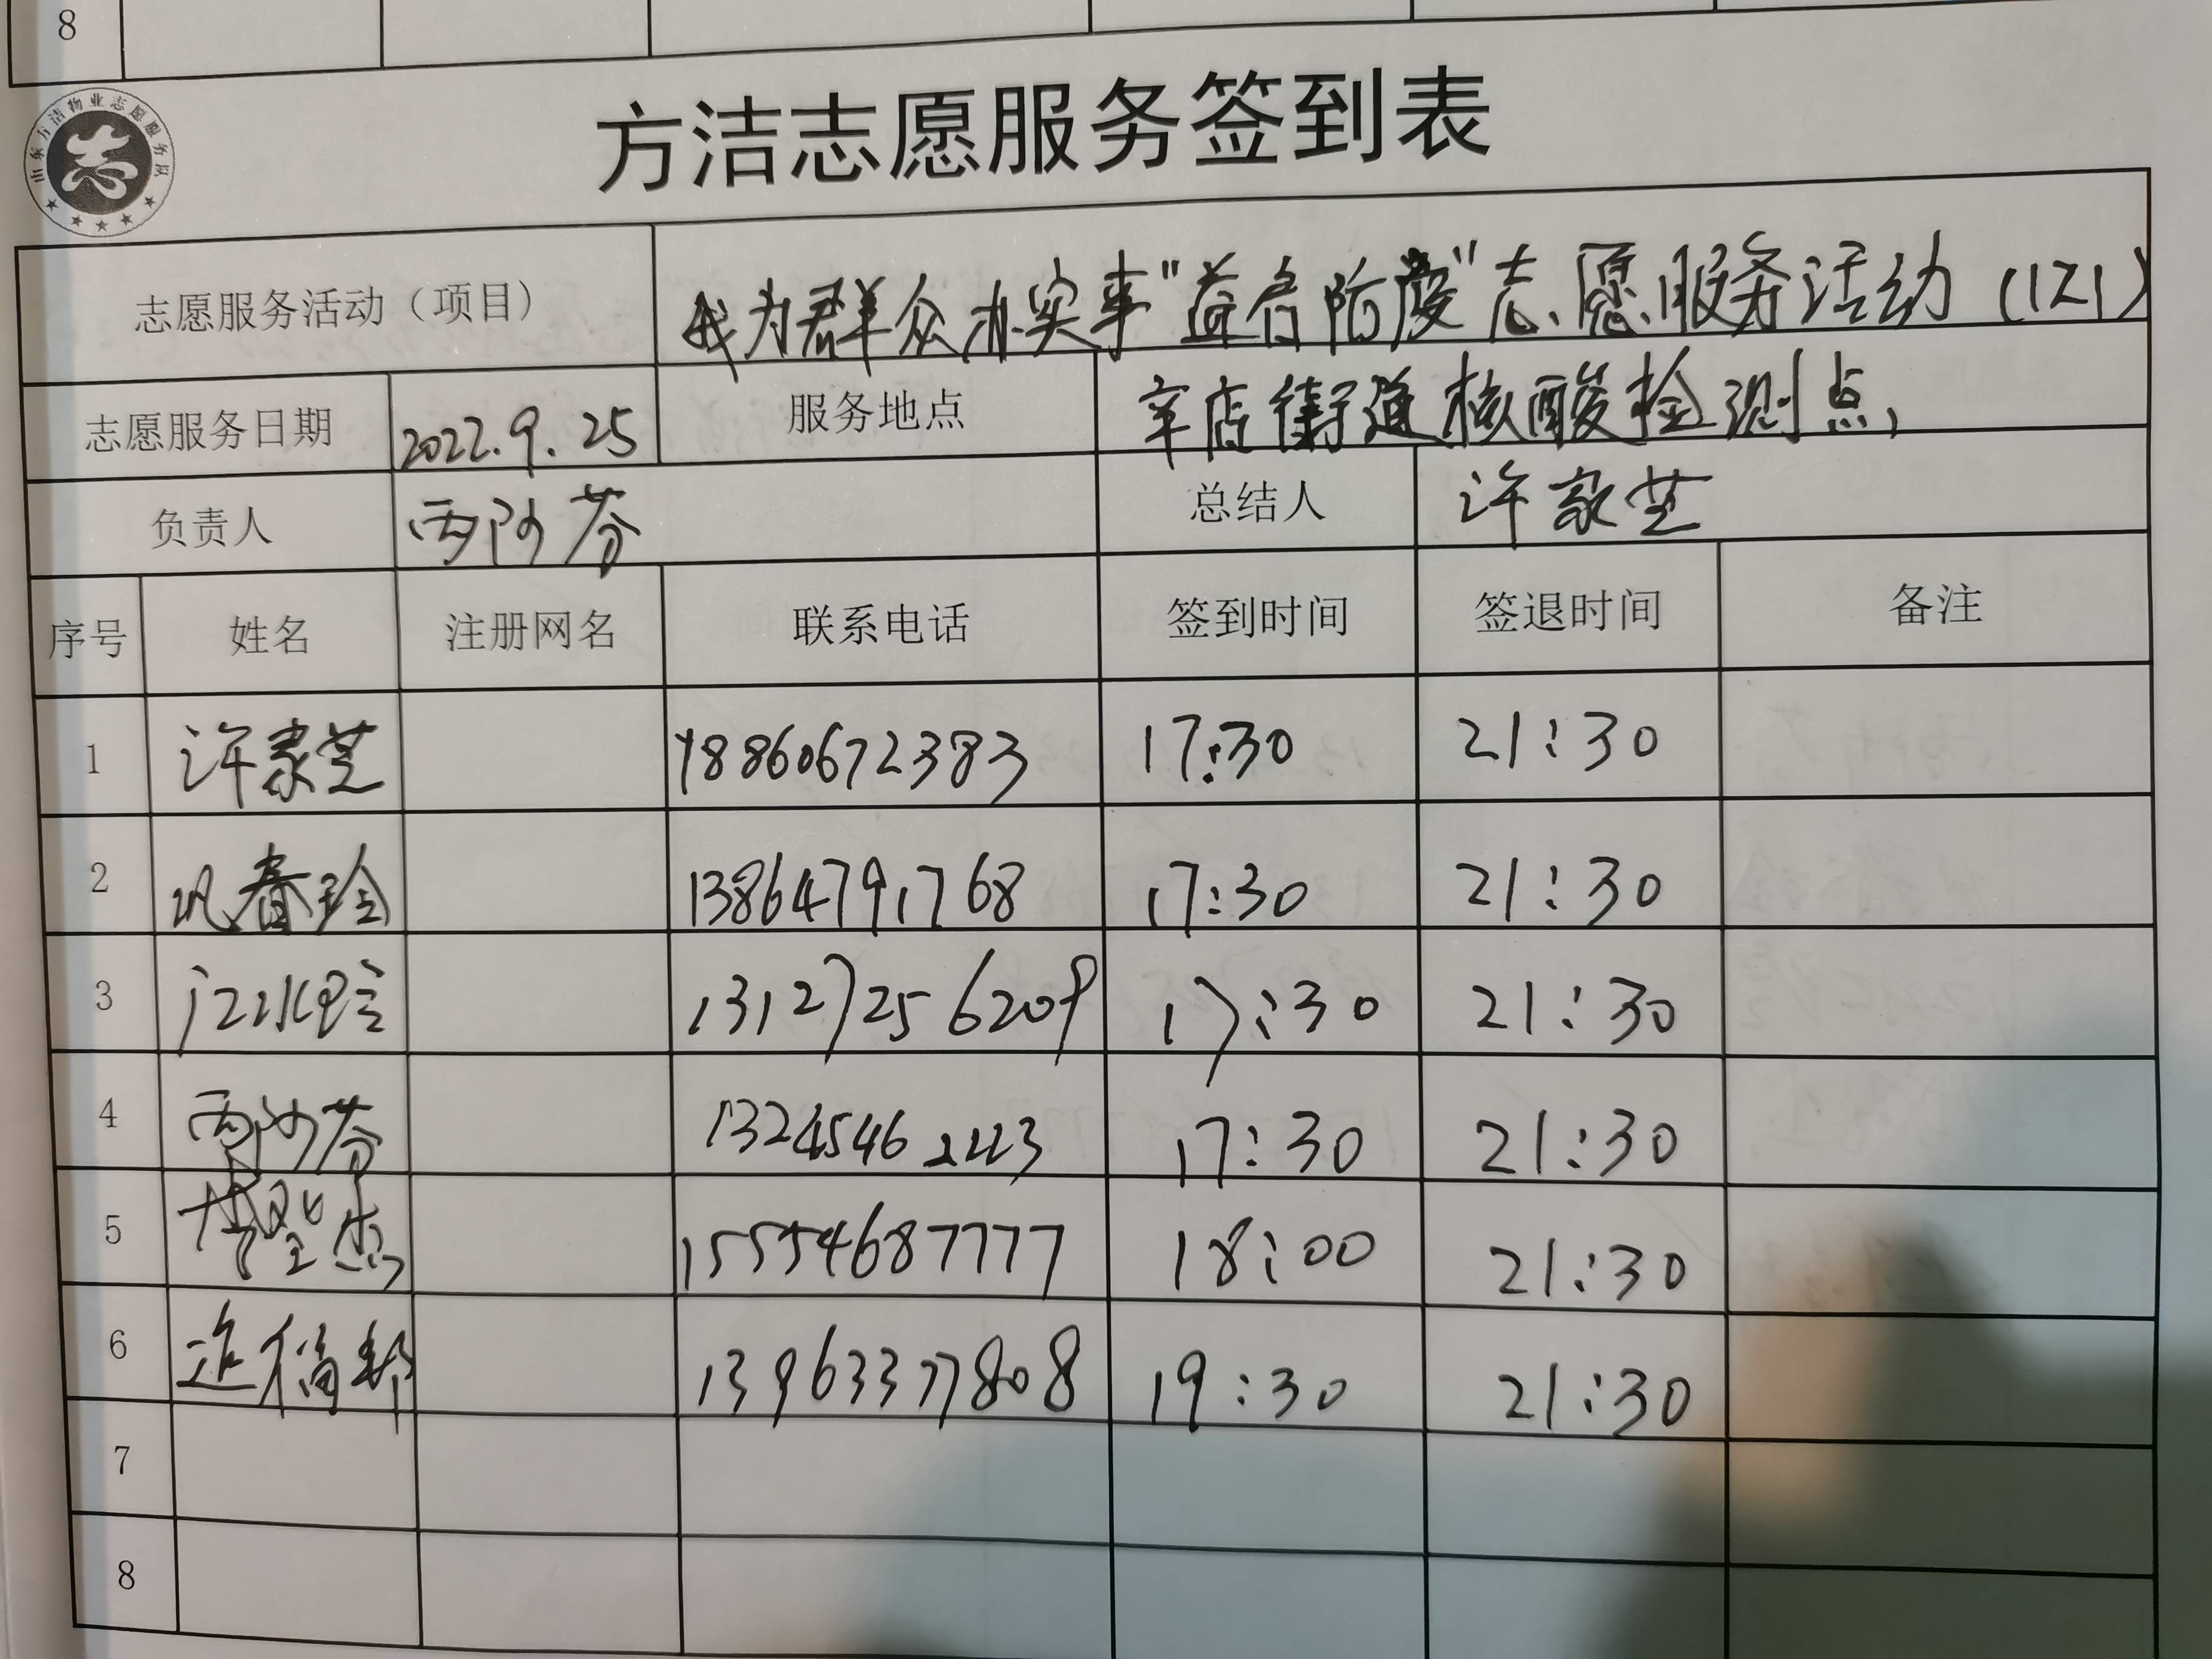 8
山东方洁物业志愿服务队
方洁志愿服务签到表
志愿服务活动（项目） 我为群众办实事"益启防疫"志愿服务活动（121）
志愿服务日期 2022.9.25 服务地点 辛店街道核酸检测点
负责人 总结人 许家芝
序号 姓名 注册网名 联系电话 签到时间 签退时间 备注
1 许家芝 18860672383 17:30 21:30
2 巩春玲 13864791768 17:30 21:30
3 13127256209 17:30 21:30
4 13245462223 17:30 21:30
5 15554687777 18:00 21:30
6 13963377808 19:30 21:30
7
8